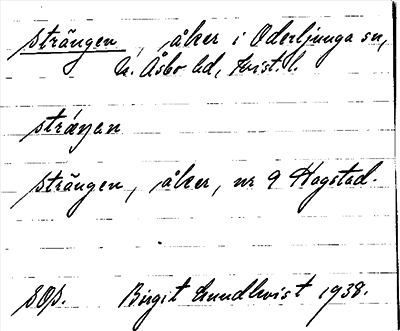 strängen , åker i Oderljunga sn,
N. Åsbo hd, Krist. l.
stráŋan
strängen, åker, nr 9 Hagstad.
SOS. Birgit Lundkvist 1938.